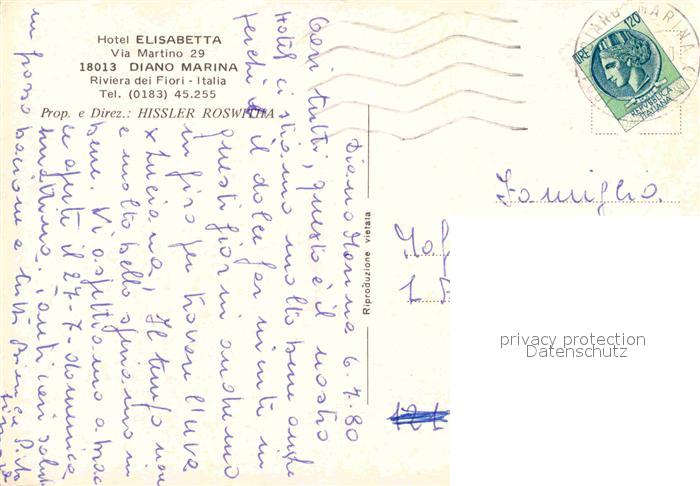 Hotel ELISABETTA
Via Martino 29
18013 DIANO MARINA
Riviera dei Fiori - Italia
Tel. (0183) 45.255
Prop. e Direz.: HISSLER ROSWITHA
Diano Marina 6.7.80
Cari tutti, questo è il nostro
Hotel ci stiamo molto bene anche
perchè il dolce far niente in
questi giorni andremo
in giro per trovare l'uva
x Luciana. Il tempo non
è molto bello speriamo in
bene. Vi aspettiamo a brac
ce aperte il 27-7- domenica
mattina. Tanti cari saluti
un grosso bacione a tutti
Riproduzione vietata
Famiglia
LIRE 120
REPVBBLICA
ITALIANA
DIANO MARINA
privacy protection
Datenschutz